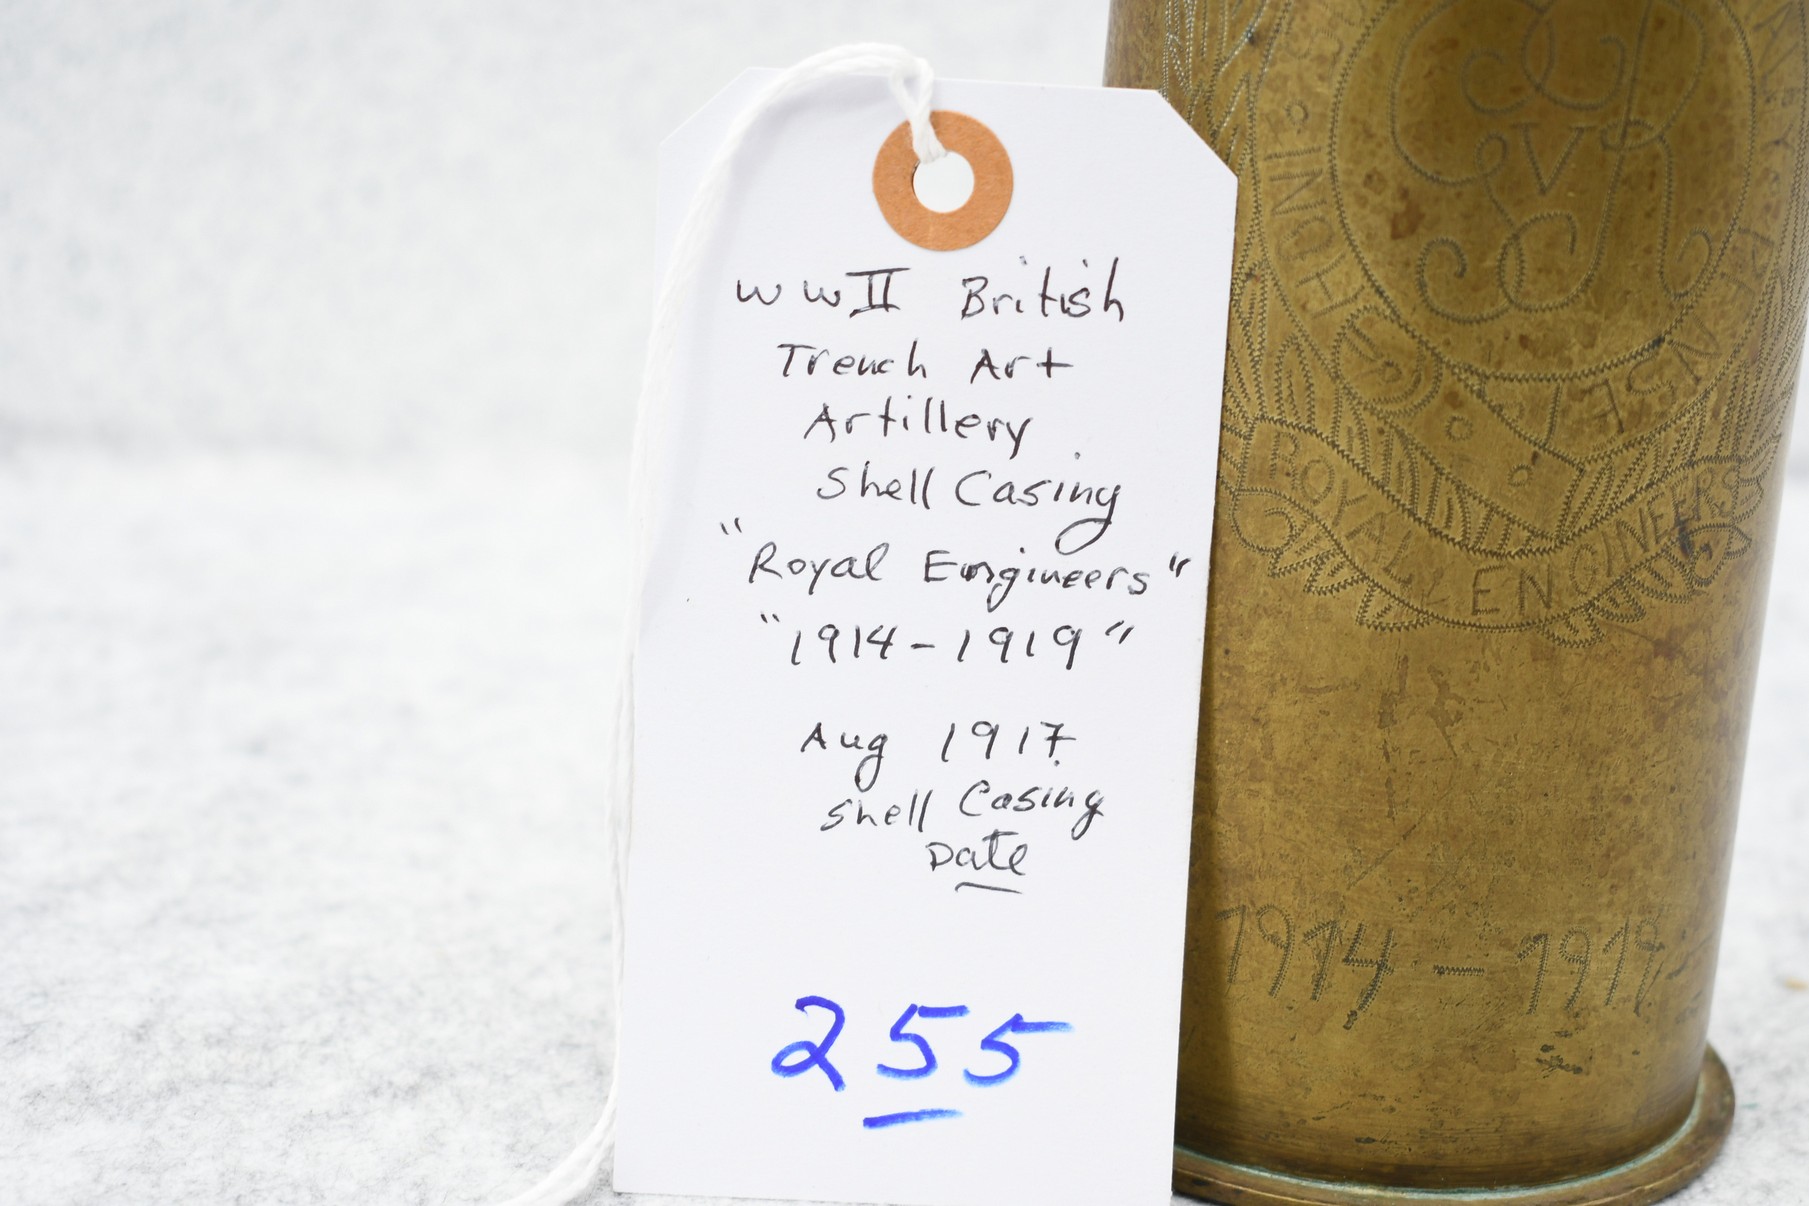 WWII British
Trench Art
Artillery
Shell Casing
"Royal Engineers"
"1914-1919"
Aug 1917
Shell Casing
Date
255
GR
V
HONI
ROYAL ENGINEERS
1914-1919